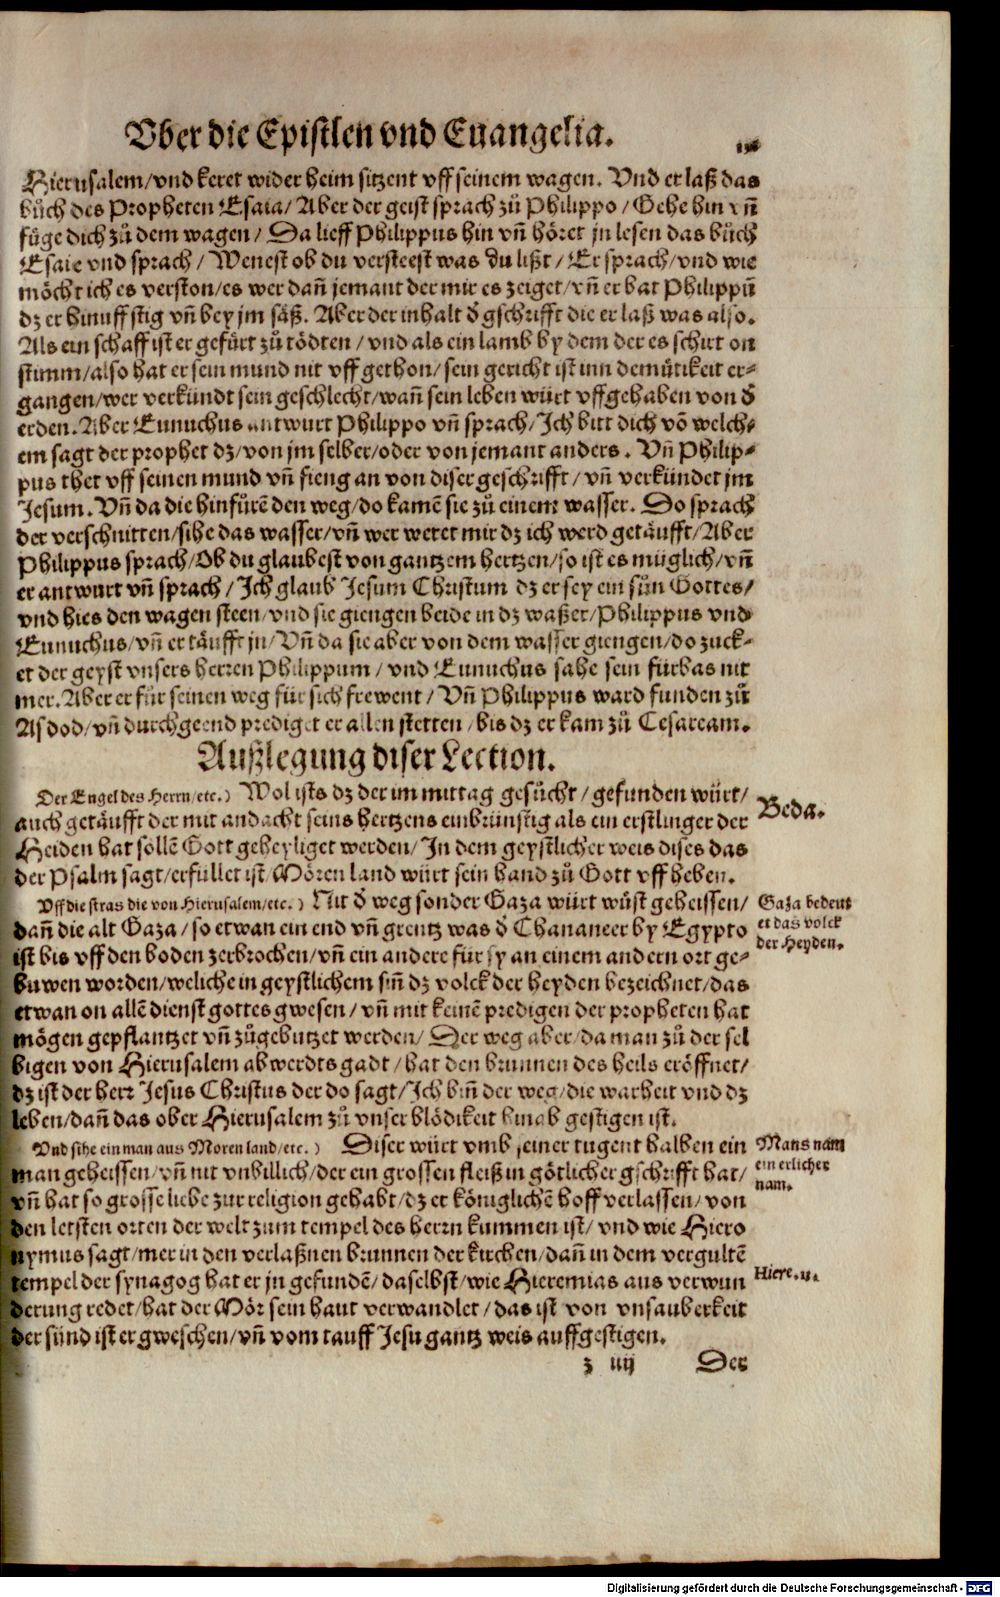 Vber die Epistlen vnd Euangelia.
Hierusalem/vnd keret wider heim sitzent vff seinem wagen. Vnd er laß das
bůch des Propheten Esaia/Aber der geist sprach zů Philippo/Gehe hin vñ
fůge dich zů dem wagen/Da lieff Philippus hin vñ höret jn lesen das bůch
Esaie vnd sprach/Wenest ob du versteest was du lißt/Er sprach/vnd wie
möcht ich es verston/es wer dañ jemant der mir es zeiget/vñ er bat Philippū
dz er hinuff stig vñ bey jm säß. Aber der inhalt d̓ gschrifft die er laß was also.
Als ein schaff ist er gefürt zů tödten/vnd als ein lamb by dem der es schirt on
stimm/also hat er sein mund nit vff gethon/sein gericht ist inn demůtikeit er-
gangen/wer verkündt sein geschlecht/wañ sein leben würt vffgehaben von d̓
erden. Aber Eunuchus antwurt Philippo vñ sprach/Ich bitt dich võ welch-
em sagt der prophet dz/von jm selber/oder von jemant anders. Vñ Philip-
pus thet vff seinen mund vñ fieng an von diser geschrifft/vñ verkündet jm
Jesum. Vñ da die hinfůrē den weg/do kamē sie zů einem wasser. Do sprach
der verschnitten/sihe das wasser/vñ wer weret mir dz ich werd getäufft/Aber
Philippus sprach/Ob du glaubest von gantzem hertzen/so ist es müglich/vñ
er antwurt vñ sprach/Ich glaub Jesum Christum dz er sey ein sůn Gottes/
vnd hies den wagen steen/vnd sie giengen beide in dz waßer/Philippus vnd
Eunuchus/vñ er täufft jn/Vñ da sie aber von dem wasser giengen/do zuck-
et der geyst vnsers herren Philippum/vnd Eunuchus sahe sein fürbas nit
mer. Aber er fůr seinen weg für sich frewent/Vñ Philippus ward funden zů
Asdod/vñ durchgeend prediget er allen stetten/bis dz er kam zů Cesaream.
Außlegung diser Lection.
Der Engel des Herrn/etc.) Wol ists dz der im mittag gesůcht/gefunden würt/
auch getäufft der mit andacht seins hertzens einbrünstig als ein erstlinger der
Heiden hat söllē Gott geheyliget werden/In dem geystlicher weis dises das
der Psalm sagt/erfüllet ist/Mören land würt sein hand zů Gott vff heben.
Beda.
Vff die stras die von Hierusalem/etc.) Nit d̓ weg sonder Gaza würt wůst geheissen/
dañ die alt Gaza/so etwan ein end vñ grentz was d̓ Chananeer by Egypto
ist bis vff den boden zerbrochen/vñ ein andere für sy an einem andern ort ge-
buwen worden/weliche in geystlichem siñ dz volck der heyden bezeichnet/das
etwan on allē dienst gottes gwesen/vñ mit keinē predigen der propheten hat
mögen gepflantzet vñ zůgebutzet werden/Der weg aber/da man zů der sel
bigen von Hierusalem abwerdts gadt/hat den brunnen des heils eröffnet/
dz ist der herr Jesus Christus der do sagt/Ich biñ der weg/die warheit vnd dz
leben/dañ das ober Hierusalem zů vnser blödikeit hinab gestigen ist.
Gaza bedeut
et das volck
der Heyden.
Vnd sihe ein man aus Moren land/etc.) Diser würt vmb einer tugent halben ein
man geheissen/vñ nit vnbillich/der ein grossen fleiß in götlicher gschrifft hat/
vñ hat so grosse liebe zur religion gehabt/dz er königlichē hoff verlassen/von
den letsten orten der welt zum tempel des herrn kummen ist/vnd wie Hiero
nymus sagt/mer in den verlaßnen brunnen der kirchen/dañ in dem vergultē
tempel der synagog hat er jn gefundē/daselbst/wie Hieremias aus verwun
derung redet/hat der Mör sein haut verwandlet/das ist von vnsauberkeit
der sünd ist er gweschen/vñ vom tauff Jesu gantz weis auffgestigen.
Mans nam
ein erlicher
nam.
Hiere.
z iiij Der
Digitalisierung gefördert durch die Deutsche Forschungsgemeinschaft - DFG